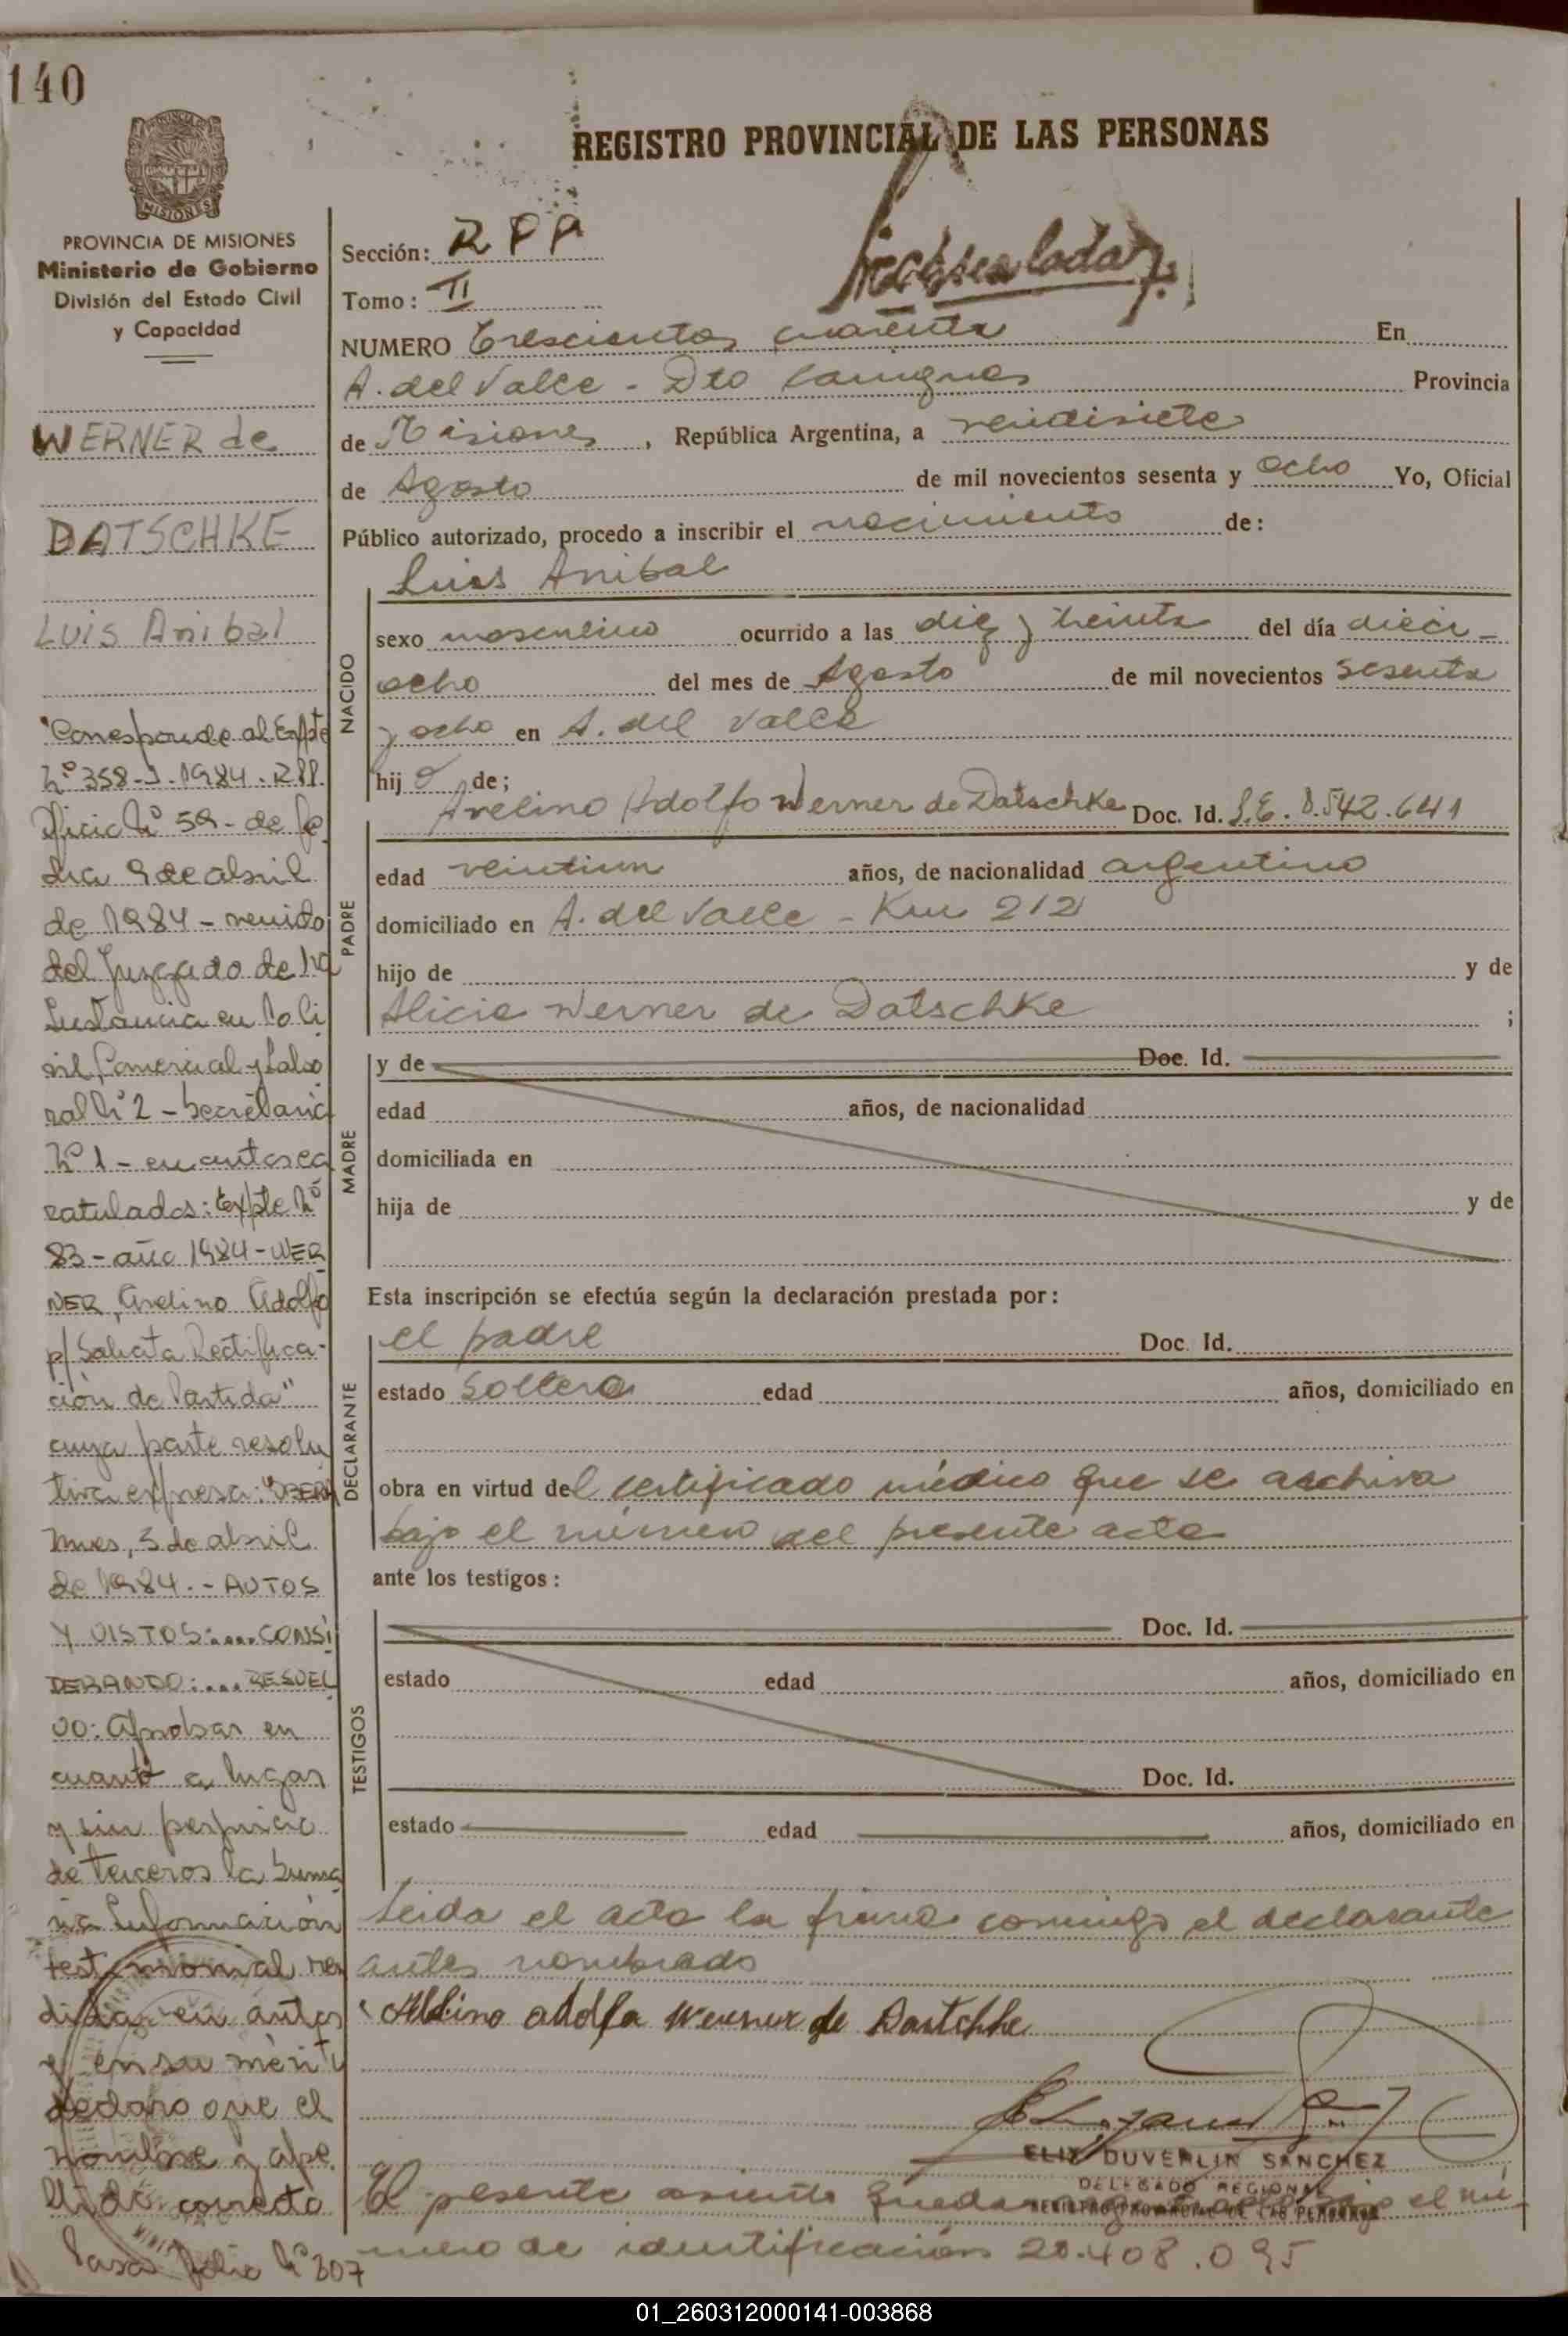 140
REGISTRO PROVINCIAL DE LAS PERSONAS
PROVINCIA DE
MISIONES
PROVINCIA DE MISIONES
Ministerio de Gobierno
División del Estado Civil
y Capacidad
WERNER de
DATSCHKE
Luis Anibal
"Corresponde al Expte
Nº 358-J-1984. RPP.
Oficio Nº 59- de fe
cha 9 de abril
de 1984 - venido
del Juzgado de 1ra
Instancia en lo Ci
vil, Comercial y Labo
ral Nº 2 - Secretaria
Nº 1 - en autos ca
ratulados: Expte Nº
83 - año 1984 - WER
NER, Avelino Adolfo
p/ Solicita Rectifica-
ción de Partida"
cuya parte resolu
tiva expresa: "OBERA
Mnes, 5 de abril
de 1984. - AUTOS
Y VISTOS:....CONSI
DERANDO:....RESUEL
VO: Aprobar en
cuanto a lugar
y sin perjuicio
de terceros la Suma
ria Información
testimonial ren
dida en autos
y en su merito
declaro que el
nombre y ape
llido correcto
Pasa folio Nº 307
Sección: R P P
Tomo: II
NUMERO Trescientos cuarenta En
A. del Valle - Dto Cainguas Provincia
de Misiones, República Argentina, a veidisiete
de Agosto de mil novecientos sesenta y ocho Yo, Oficial
Público autorizado, procedo a inscribir el nacimiento de:
Luis Anibal
NACIDO
sexo masculino ocurrido a las diez y treinta del día dieci-
ocho del mes de Agosto de mil novecientos sesenta
y ocho en A. del Valle
hij o de;
Avelino Adolfo Werner de Datschke Doc. Id. L.E. 8.542.641
PADRE
edad veintiun años, de nacionalidad argentino
domiciliado en A. del Valle - Km 212
hijo de y de
Alicia Werner de Datschke ;
MADRE
y de Doc. Id.
edad años, de nacionalidad
domiciliada en
hija de y de
Esta inscripción se efectúa según la declaración prestada por:
DECLARANTE
el padre Doc. Id.
estado soltero edad años, domiciliado en
obra en virtud del certificado médico que se archiva
bajo el número del presente acta
ante los testigos:
TESTIGOS
Doc. Id.
estado edad años, domiciliado en
Doc. Id.
estado edad años, domiciliado en
Leida el acta la firma conmigo el declarante
antes nombrado
adolfo Werner de
ELIX DUVERLIN SANCHEZ
DELEGADO REGIONAL
REGISTRO PROVINCIAL DE LAS PERSONAS
El presente asiento queda el nú-
mero de identificación 20.408.095
01_260312000141-003868